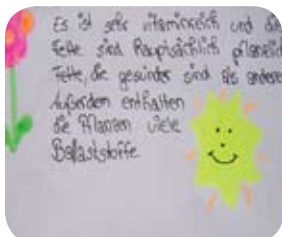 Es ist sehr vitaminreich und die
Fette sind hauptsächlich pflanzlich
Fette, die gesünder sind als andere
Außerdem enthalten
die Pflanzen viele
Ballaststoffe